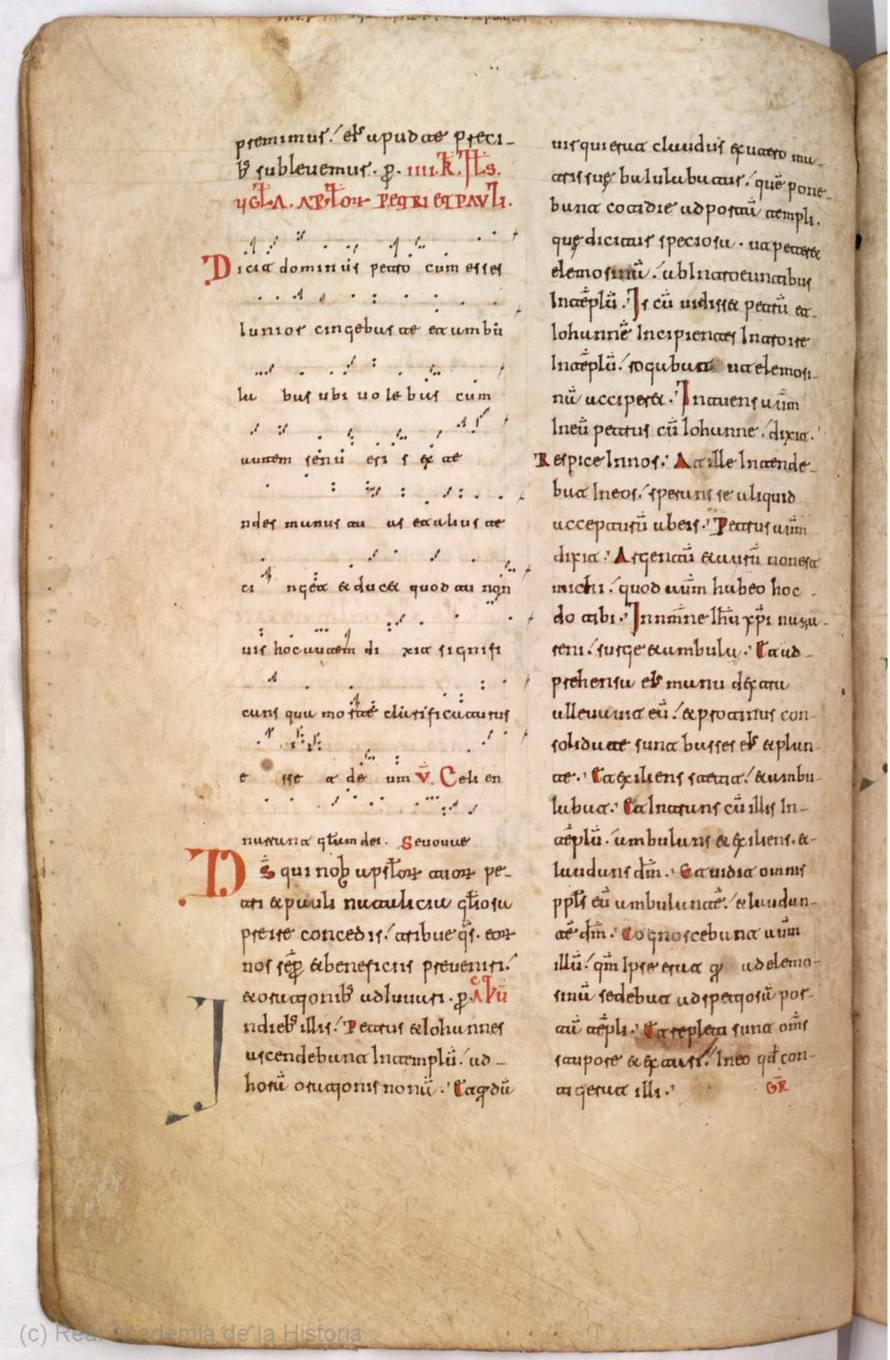 premimus. eꝉ apud te preci-
bꝰ subleuemus. ꝓ. IIII. K. JLS.
VIGLA. APLOR PETRI ET PAVLI.
Dicit dominus petro cum esses
Iunior cingebas te et ambu
la bas ubi uolebas cum
autem senu eri s ex te
ndes manus tu as et alius te
ci nget & ducet quod tu non
uis hoc autem di xit signifi
cans qua morte clarificaturus
e sse t de um V. Celi en
narrant glam dei. Seuouae
Ds qui nob apstlor tuor pe-
tri & pauli natalicia gliosa
preire concedis. tribue qs. eor
nos sēp & beneficiis preueniri.
& orationib adIuuari. ꝓ.
In dieb illis. Petrus & Iohannes
ascendebant In templū. ad-
horā orationis nonā. Et qdā
uir qui erat claudus ex utero ma-
tris sue baiulabatur. quē pone-
bant cotidie ad portā templi.
que dicitur speciosa. ut peteret
elemosinā. ab Introeuntibus
In tēplū. Is cū uidisset petrū et-
Iohannē Incipientes Introire
In tēplū. rogabat ut elemosi-
nā acciperet. Intuens aūm
In eū petrus cū Iohanne. dixit.
Respice In nos. At ille Intende-
bat In eos. sperans se aliquid
accepturū ab eis. Petrus aūm
dixit. Argentū & aurū non est
michi. quod aūm habeo hoc
do tibi. In nmīne Ihu xpi naza-
reni. surge & ambula. Et ad-
prehensa eꝉ manu dextra
alleuauit eū. & protinus con-
solidate sunt basses eꝉ & plan-
te. Et exiliens stetit. & ambu-
labat. Et Intrauns cū illis In-
tēplū. ambulans & exiliens. &-
laudans dm̄. Et uidit omnis
ppls eū ambulantē. & laudan-
tē dm̄. Cognoscebant aūm
illū. qm̄ Ipse erat q ad elemo-
sinā sedebat ad speciosā por-
tā tēpli. Et repleti sunt om̄s
stupore & extasi. In eo qd con-
tigerat illi. GR
(c) Real Academia de la Historia